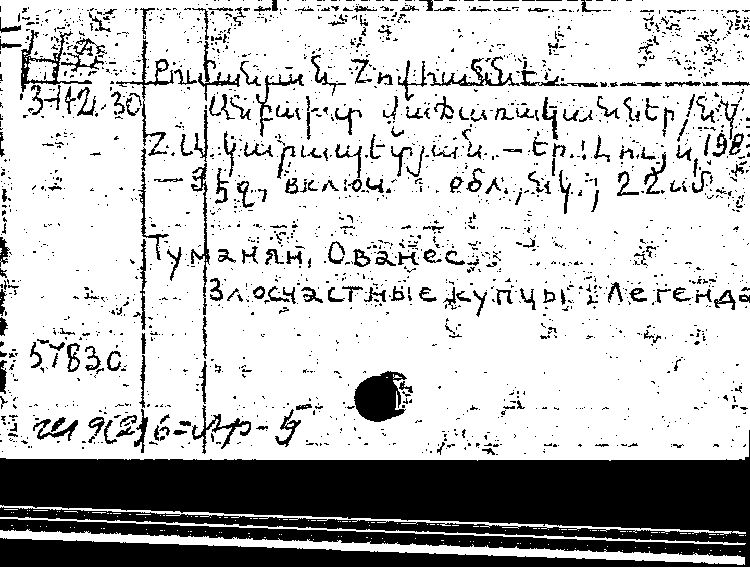 Թումանյան, Հովհաննես
3-142 30 Անբախտ վաճառականներ /նկ.
Հ.Ա. Կարապետյան. – Եր.: Լույս, 198
– 35 գ, включ. обл., նկ.; 22 սմ
Туманян, Ованес
Злосчастные купцы: Легенда
57830